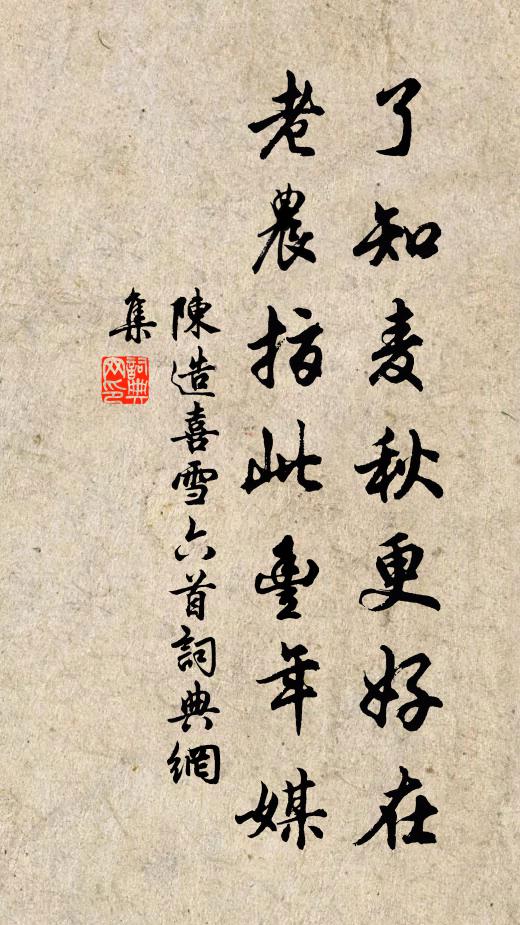 了知麦秋更好在
老農指此豐年媒
陳造喜雪六首詞典網
集
詞典
网印